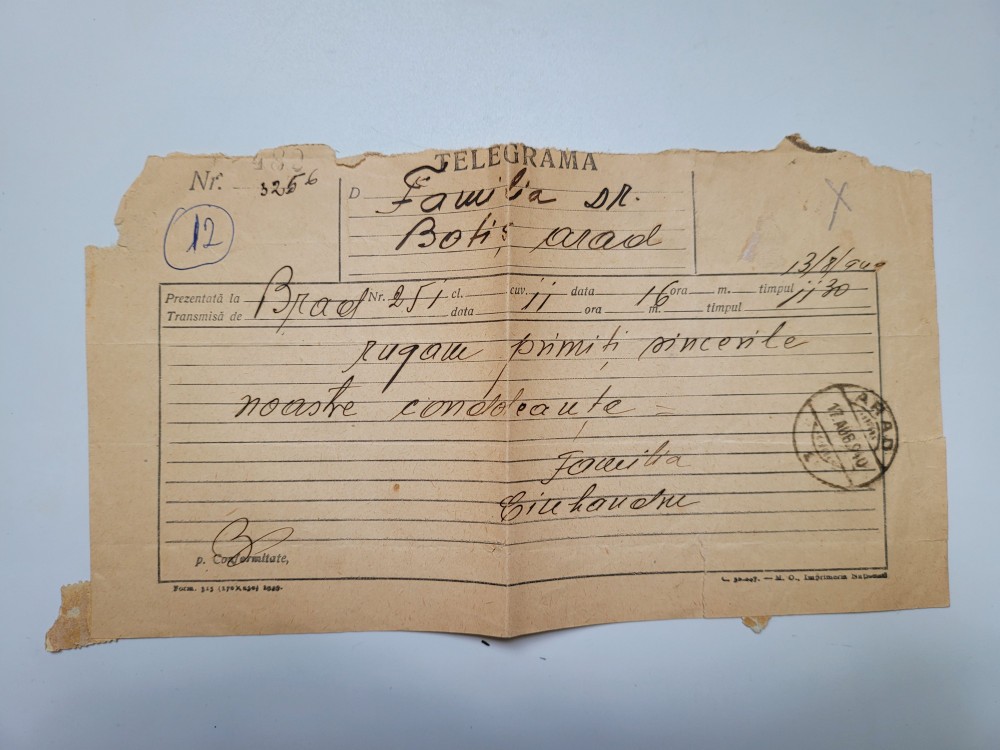 TELEGRAMA
Nr. 3266
12
D Familia Dr.
Botiș, Arad
X
13/8/940
Prezentată la Brad Nr. 251 cl. cuv. 11 data 16 ora m. timpul 11 30
Transmisă de data ora m. timpul
rugam primiți sincerile
noastre condoleanțe =
Familia
Ciuhandru
ARAD
AUG. 940
p. Conformitate,
Form. 515 (170×250) 1939.
M. O., Imprimeria Națională